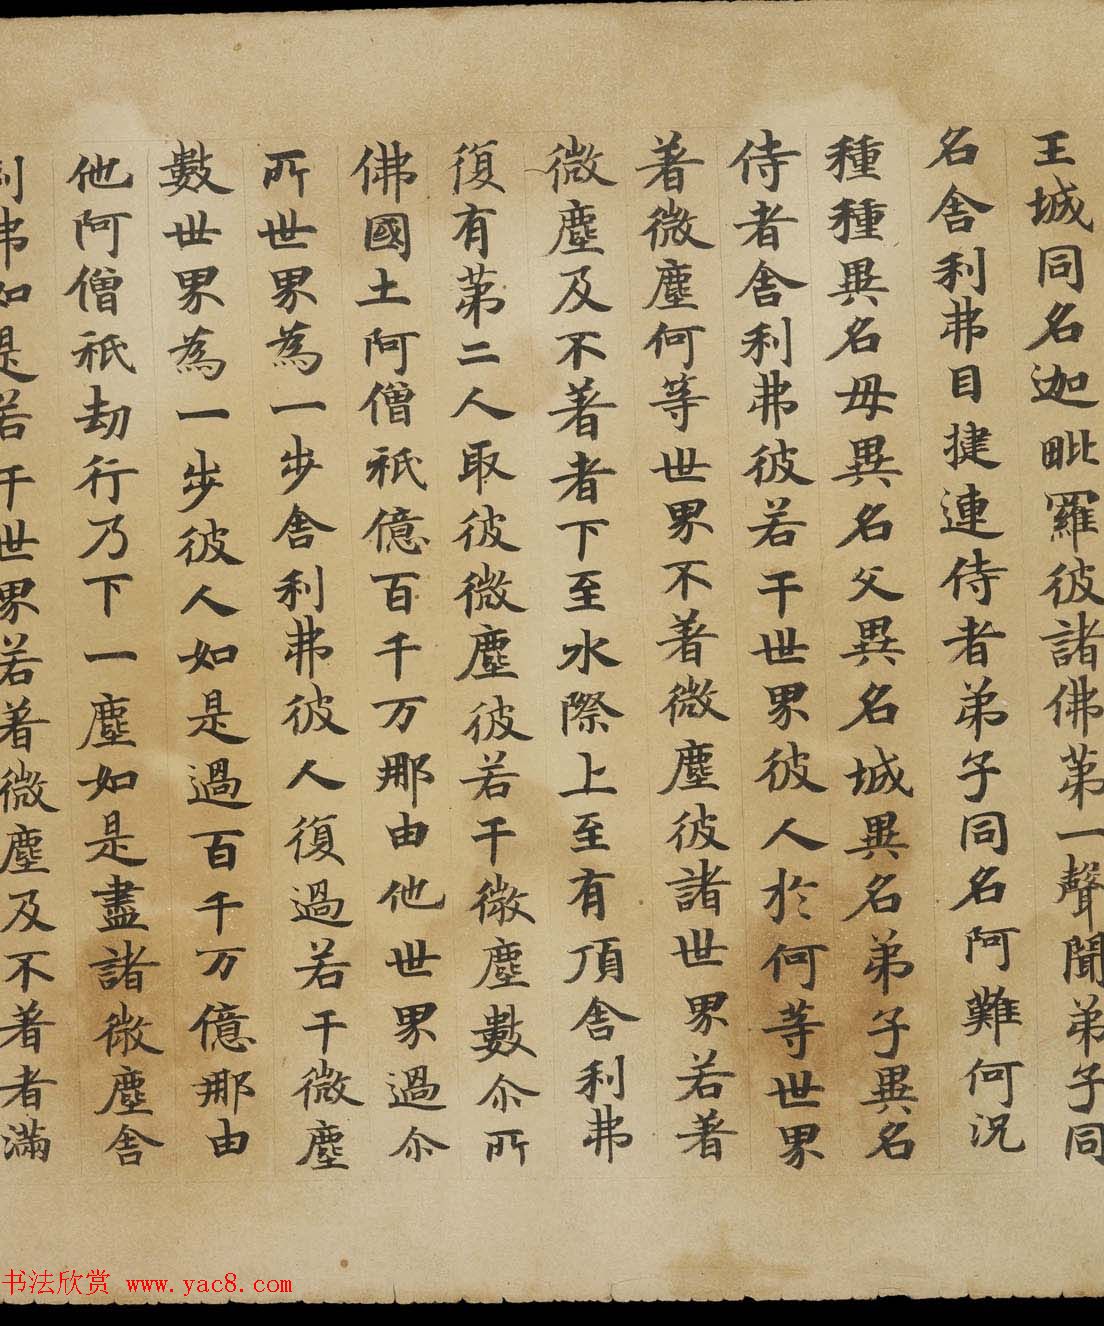 王城同名迦毗羅彼諸佛苐一聲聞弟子同
名舎利弗目揵連侍者弟子同名阿難何況
種種異名母異名父異名城異名弟子異名
侍者舎利弗彼若干世界彼人於何等世界
著微塵何等世界不著微塵彼諸世界若著
微塵及不著者下至水際上至有頂舎利弗
復有苐二人取彼微塵彼若干微塵數尒所
佛國土阿僧祇億百千万那由他世界過尒
所世界為一步舎利弗彼人復過若干微塵
數世界為一步彼人如是過百千万億那由
他阿僧祇劫行乃下一塵如是盡諸微塵舎
利弗如是若干世界若著微塵及不著者滿
书法欣赏 www.yac8.com